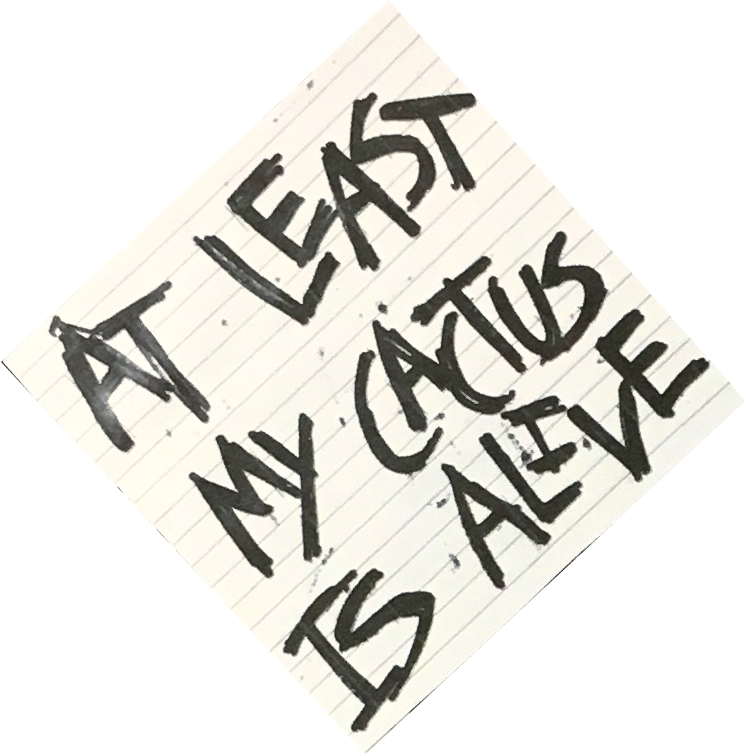 AT LEAST
MY CACTUS
IS ALIVE